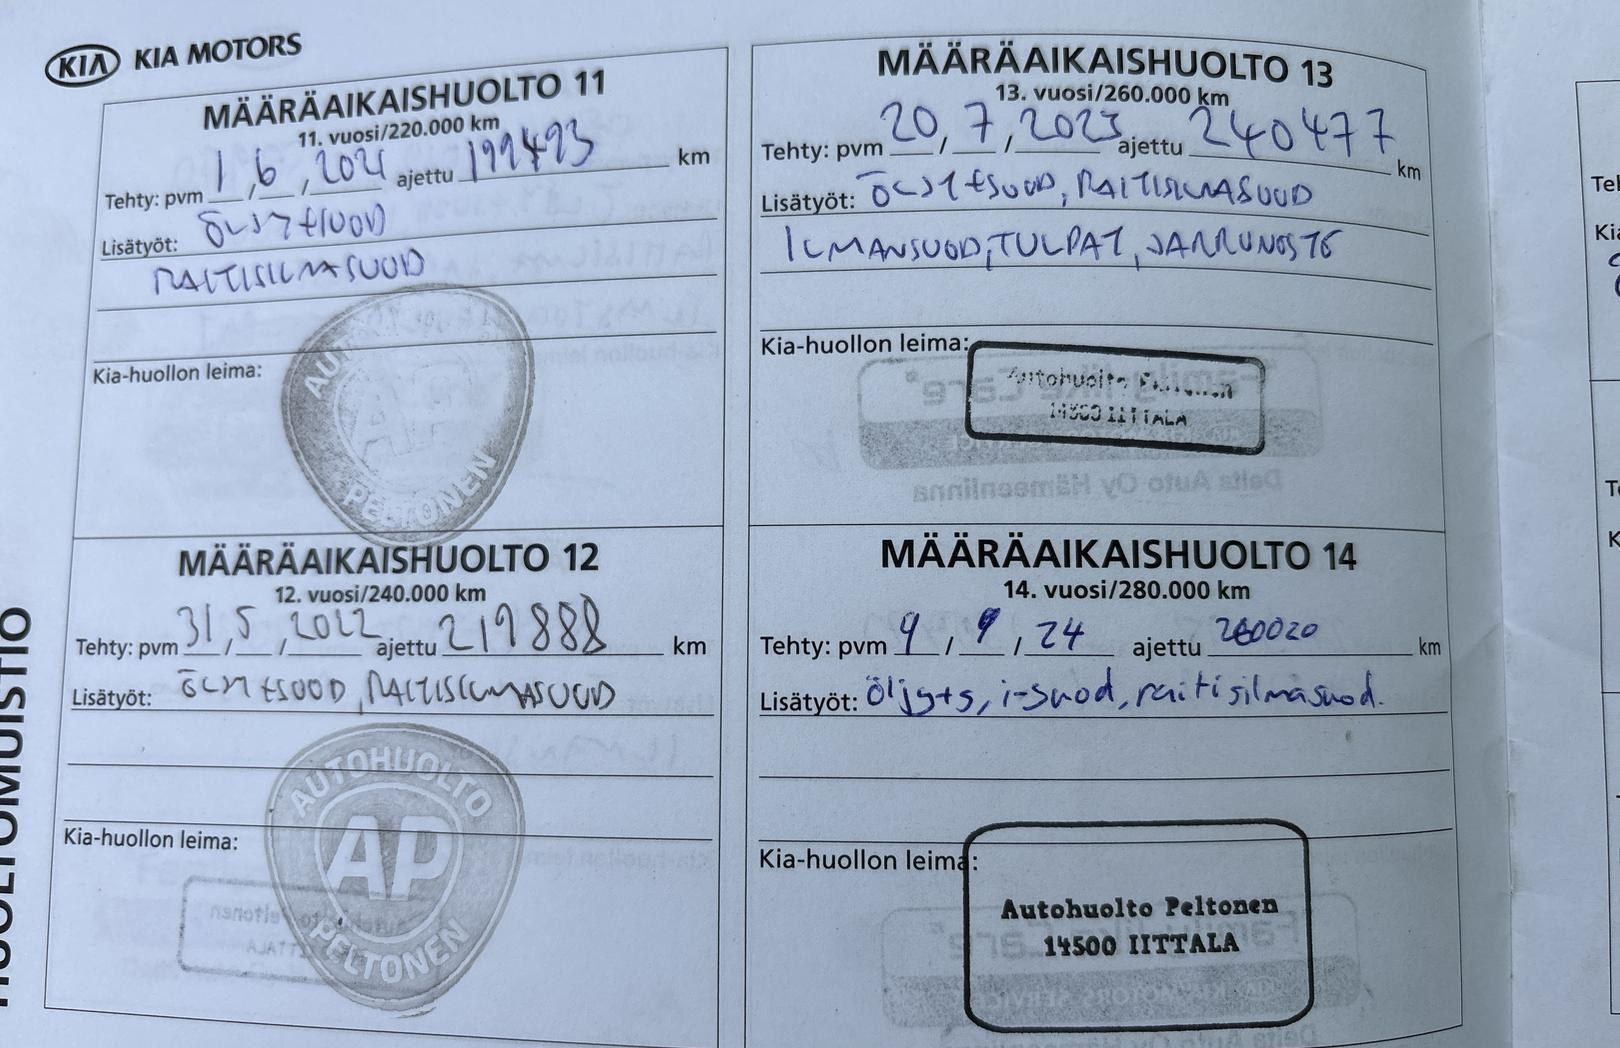 KIA KIA MOTORS
MÄÄRÄAIKAISHUOLTO 11
11. vuosi/220.000 km
Tehty: pvm 1 / 6 / 2021 ajettu 199493 km
Lisätyöt: ÖLJY+SUOD
RAITISILMASUOD
Kia-huollon leima:
PELTONEN
MÄÄRÄAIKAISHUOLTO 12
12. vuosi/240.000 km
Tehty: pvm 31 / 5 / 2022 ajettu 219888 km
Lisätyöt: ÖLJY+SUOD, RAITISILMASUOD
Kia-huollon leima:
AUTOHUOLTO
AP
PELTONEN
MÄÄRÄAIKAISHUOLTO 13
13. vuosi/260.000 km
Tehty: pvm 20 / 7 / 2023 ajettu 240477 km
Lisätyöt: ÖLJY+SUOD, RAITISILMASUOD
ILMANSUOD, TULPAT, JARRUNESTE
Kia-huollon leima:
Autohuolto Peltonen
14500 IITTALA
MÄÄRÄAIKAISHUOLTO 14
14. vuosi/280.000 km
Tehty: pvm 9 / 9 / 24 ajettu 260020 km
Lisätyöt: Öljy+s, i-suod, raitisilmasuod.
Kia-huollon leima:
Autohuolto Peltonen
14500 IITTALA
HUOLTOMUISTIO